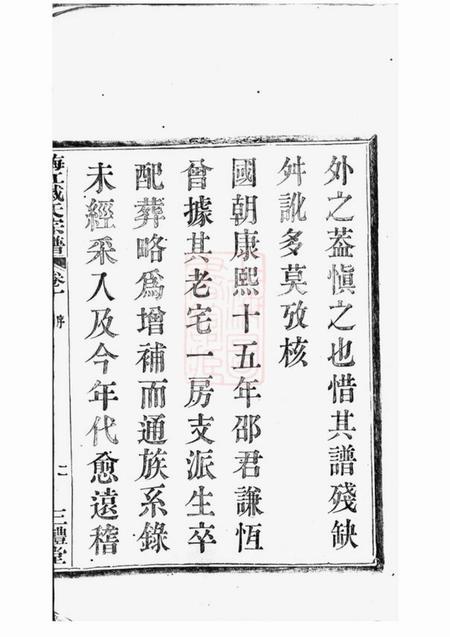 外之蓋愼之也惜其譜殘缺
舛訛多莫攷核
國朝康熙十五年邵君謙恆
曾據其老宅一房支派生卒
配葬略爲增補而通族系錄
未經采入及今年代愈遠稽
氏宗譜 卷一 序 二 三禮堂